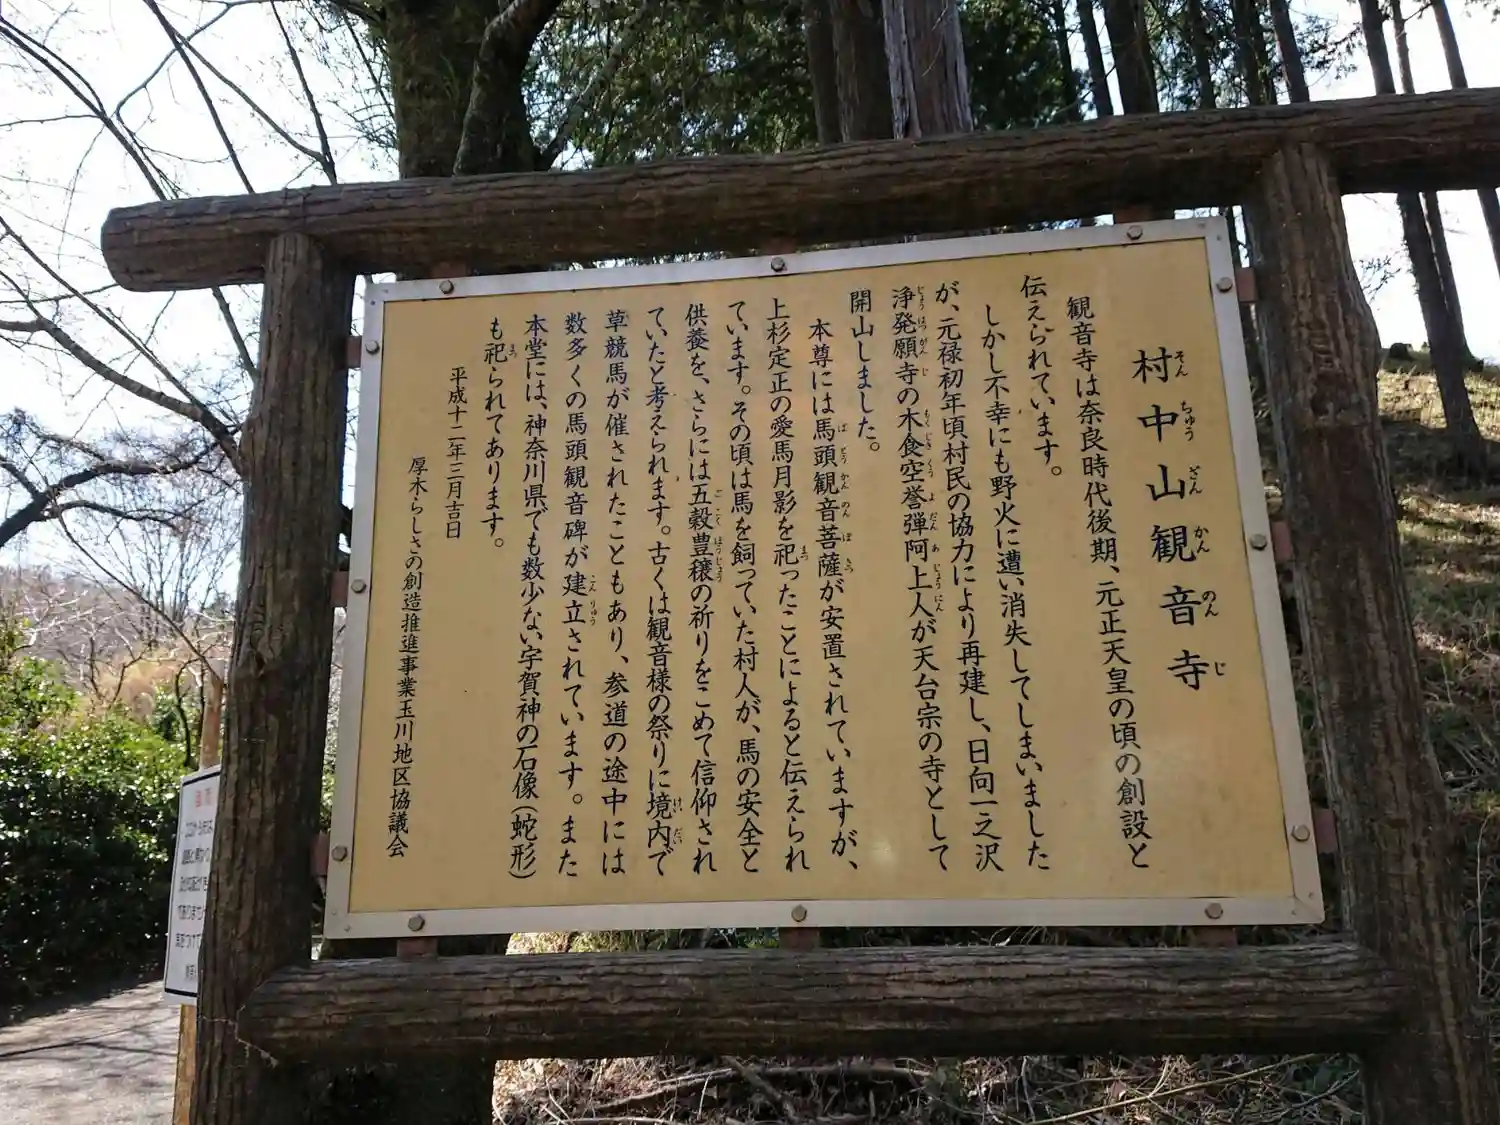 村中山観音寺
観音寺は奈良時代後期、元正天皇の頃の創設と
伝えられています。
しかし不幸にも野火に遭い消失してしまいました
が、元禄初年頃村民の協力により再建し、日向一之沢
浄発願寺の木食空誉弾阿上人が天台宗の寺として
開山しました。
本尊には馬頭観音菩薩が安置されていますが、
上杉定正の愛馬月影を祀ったことによると伝えられ
ています。その頃は馬を飼っていた村人が、馬の安全と
供養を、さらには五穀豊穣の祈りをこめて信仰され
ていたと考えられます。古くは観音様の祭りに境内で
草競馬が催されたこともあり、参道の途中には
数多くの馬頭観音碑が建立されています。また
本堂には、神奈川県でも数少ない宇賀神の石像(蛇形)
も祀られてあります。
平成十二年三月吉日
厚木らしさの創造推進事業玉川地区協議会